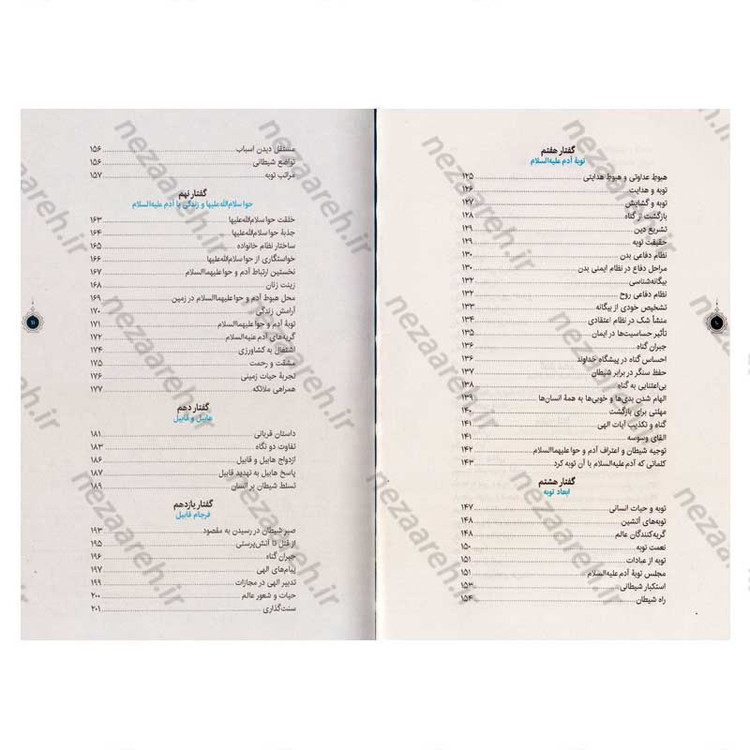 گفتار هفتم
توبهٔ آدم علیه‌السلام
هبوط عداوتی و هبوط هدایتی ۱۲۵
توبه و هدایت ۱۲۶
توبه و گشایش ۱۲۷
بازگشت از گناه ۱۲۸
تشریع دین ۱۲۹
حقیقت توبه ۱۲۹
نظام دفاعی بدن ۱۳۰
مراحل دفاع در نظام ایمنی بدن ۱۳۰
بیگانه‌شناسی ۱۳۲
نظام دفاعی روح ۱۳۲
تشخیص خودی از بیگانه ۱۳۳
منشأ شک در نظام اعتقادی ۱۳۴
تأثیر حساسیت‌ها در ایمان ۱۳۵
جبران گناه ۱۳۶
احساس گناه در پیشگاه خداوند ۱۳۶
حفظ سنگر در برابر شیطان ۱۳۷
بی‌اعتنایی به گناه ۱۳۸
الهام شدن بدی‌ها و خوبی‌ها به همهٔ انسان‌ها ۱۳۹
مهلتی برای بازگشت ۱۴۰
گناه و تکذیب آیات الهی ۱۴۱
القای وسوسه ۱۴۱
توجیه شیطان و اعتراف آدم و حوا علیهماالسلام ۱۴۲
کلماتی که آدم علیه‌السلام با آن توبه کرد ۱۴۳
گفتار هشتم
ابعاد توبه
توبه و حیات انسانی ۱۴۷
توبه‌های آتشین ۱۴۸
گریه‌کنندگان عالم ۱۴۸
نعمت توبه ۱۵۰
توبه از عبادات ۱۵۱
مجلس توبهٔ آدم علیه‌السلام ۱۵۱
استکبار شیطانی ۱۵۳
راه شیطان ۱۵۴
مستقل دیدن اسباب ۱۵۶
تواضع شیطانی ۱۵۶
مراتب توبه ۱۵۷
گفتار نهم
حوا سلام‌الله‌علیها و زندگی با آدم علیه‌السلام
خلقت حوا سلام‌الله‌علیها ۱۶۳
جذبهٔ حوا سلام‌الله‌علیها ۱۶۴
ساختار نظام خانواده ۱۶۵
خواستگاری از حوا سلام‌الله‌علیها ۱۶۶
نخستین ارتباط آدم و حوا علیهماالسلام ۱۶۷
زینت زنان ۱۶۸
محل هبوط آدم و حوا علیهماالسلام در زمین ۱۶۹
آرامش زندگی ۱۷۰
توبهٔ آدم و حوا علیهماالسلام ۱۷۱
گریه‌های آدم علیه‌السلام ۱۷۲
اشتغال به کشاورزی ۱۷۴
مشقت و رحمت ۱۷۵
تجربهٔ حیات زمینی ۱۷۶
همراهی ملائکه ۱۷۷
گفتار دهم
هابیل و قابیل
داستان قربانی ۱۸۱
تفاوت دو نگاه ۱۸۳
ازدواج هابیل و قابیل ۱۸۶
پاسخ هابیل به تهدید قابیل ۱۸۷
تسلط شیطان بر انسان ۱۸۹
گفتار یازدهم
فرجام قابیل
صبر شیطان در رسیدن به مقصود ۱۹۳
از قتل تا آتش‌پرستی ۱۹۵
جبران گناه ۱۹۶
پیام‌های الهی ۱۹۷
تدبیر الهی در مجازات ۱۹۹
حیات و شعور عالم ۲۰۰
سنت‌گذاری ۲۰۱
nezaareh.ir